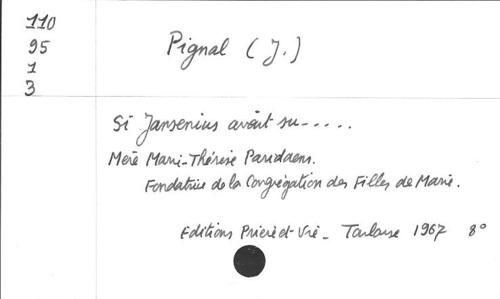 110
95
1
3
Pignal (J.)
Si Jansenius avait su-----.
Mère Marie-Thérèse Paridaens.
Fondatrice de la Congrégation des Filles de Marie.
Editions Prière et Vie_ Toulouse 1967 8°